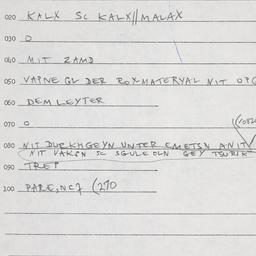 020 KALX SC KALX//MALAX
030 O
040 MIT ZAMD
050 VAPNE GL DER ROXMATERYAL NIT OPG
060 DEM LEYTER
070 O
080 NIT DURKHGEYN UNTER
NIT VAKPN SC SGULE OLN GEY TSURIK
090 TREP
100 PARE, NC7 (270